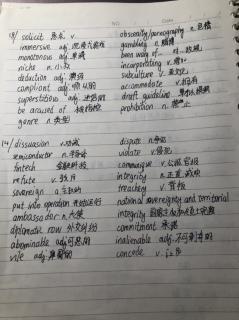 NO.
Date
13/ solicit 恳求 v.
immersive adj. 沉浸式的
monotonous adj. 单调
niche n. 小众
deduction
compliant adj. 顺从的
superstition 迷信
be accused of 被指控
genre n. 类型
obscenity/pornography n. 色情
gambling n. 赌博
been wary of
incorporating v.
subculture n. 亚文化
accommodate v.
draft guideline
prohibition n. 禁止
14/ dissuasion n. 劝诫
semiconductor n. 半导体
fintech 金融科技
refute v. 反驳
sovereign a. 主权的
put into operation 开始运行
ambassador n. 大使
diplomatic row 外交纠纷
abominable adj. 可恶的
vile adj. 卑鄙的
dispute n. 争端
violate v. 侵犯
communique n. 公报
integrity n. 正直
treachery n. 背叛
national sovereignty and territorial
integrity 国家主权和领土完整
commitment 承诺
inalienable adj. 不可剥夺的
concede v.